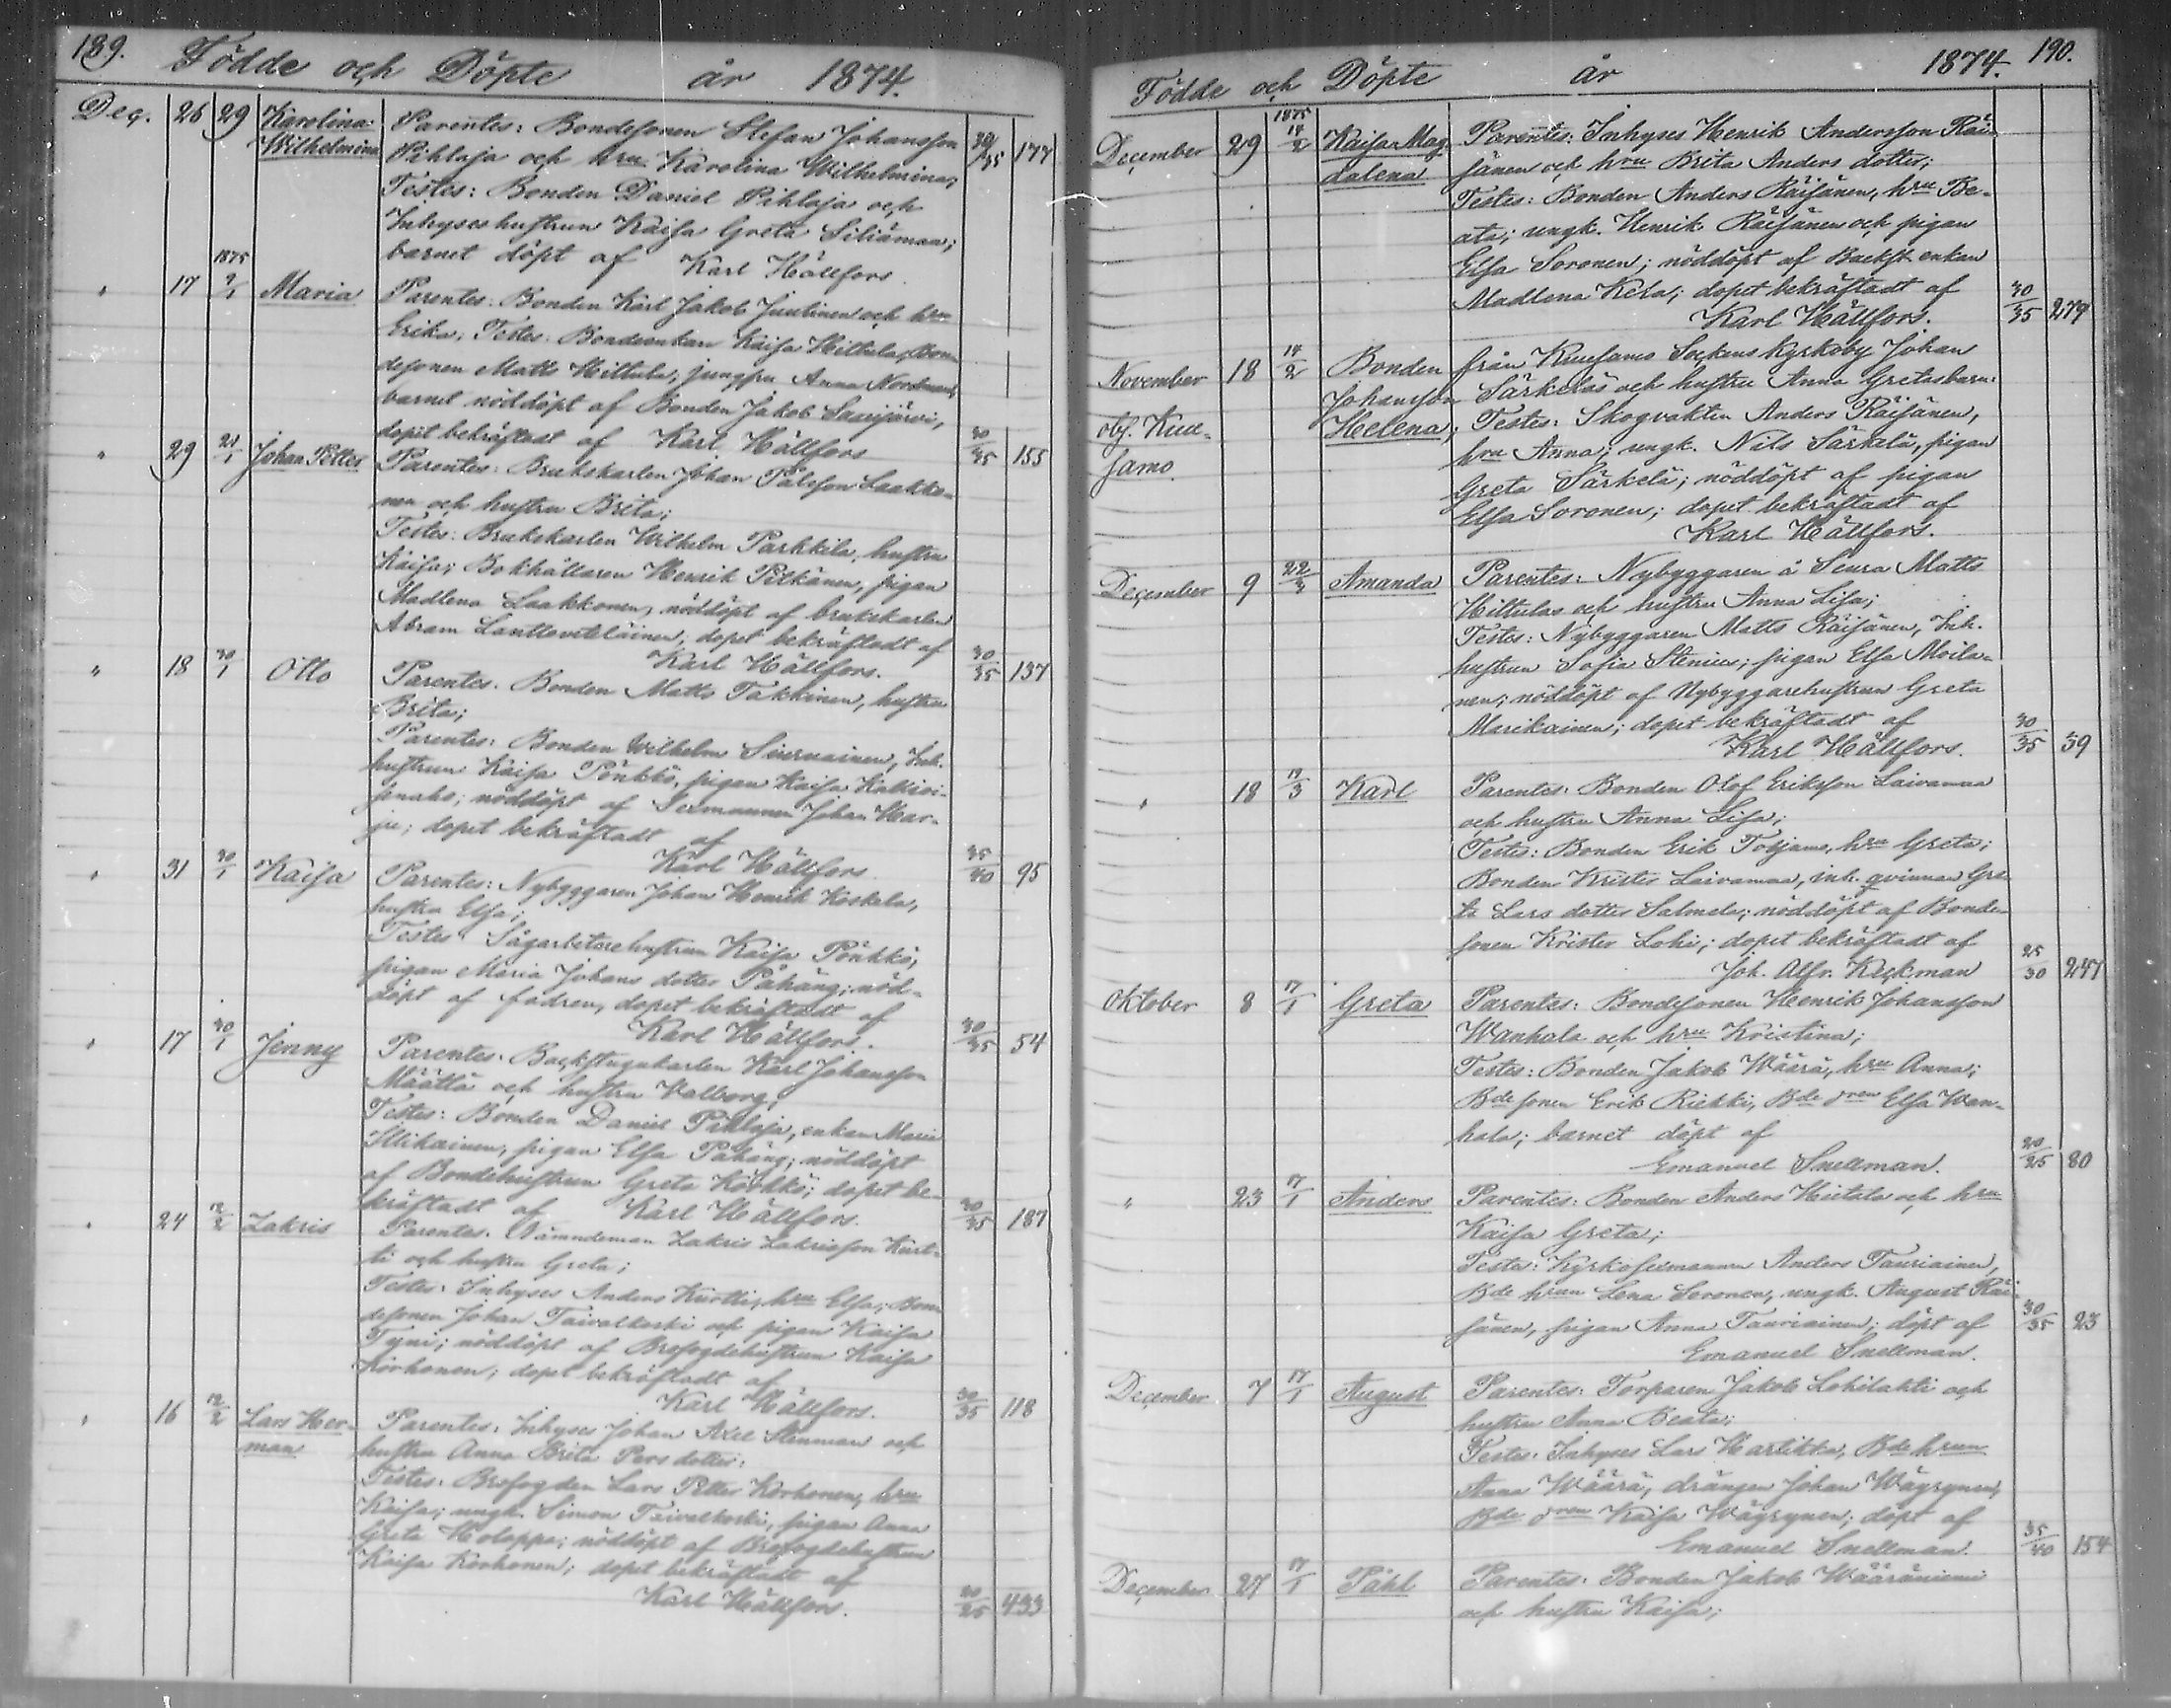 189. Födde och Döpte år 1874.
Dec. 26 29 Karolina Parentes: Bondesonen Stefan Johansson 30/35 177
Wilhelmina Pihlaja och hru Karolina Wilhelmina;
Testes: Bonden Daniel Pihlaja och
Inhyseshustrun Kaisa Greta
barnet döpt af Karl Hällfors.
" 17 1875 Maria Parentes: Bonden Karl Jakob Juntinen och hru
Erika; Testes: Bondeenkan Kaisa Hiltula, Bon-
desonen Matts Hiltula, jungfru Anna
barnet nöddöpt af Bonden Jakob Saarijärvi,
dopet bekräftadt af Karl Hällfors 30/35 155
" 29 21/1 Johan Petter Parentes: Brukskarlen Johan Pålsson Laakko-
nen och hustru Brita;
Testes: Brukskarlen Wilhelm Parkkila, hustru
Kaisa; Bokhållaren Henrik Pitkänen, pigan
Madlena Laakkonen, nöddöpt af brukskarlen
Abram dopet bekräftadt af
Karl Hällfors. 30/35 137
" 18 30/1 Otto Parentes: Bonden Matts Takkinen, hustru
Brita;
Parentes: Bonden Wilhelm Seurnainen, Inh.
hustrun Kaisa Pönkkö, pigan Kaisa
nöddöpt af Sexmannen Johan Har-
ju; dopet bekräftadt af
Karl Hällfors. 35/40 95
" 31 30/1 Kaisa Parentes: Nybyggaren Johan Henrik Koskela,
hustru Elsa;
Testes: Sågarbetarehustrun Kaisa Pönkkö,
pigan Maria Johans dotter Påhäng; nöd-
döpt af fadren, dopet bekräftadt af
Karl Hällfors. 30/35 54
" 17 30/1 Jenny Parentes: Backstugukarlen Karl Johansson
Määttä och hustru Valborg;
Testes: Bonden Daniel Pihlaja, enkan Maria
Illikainen, pigan Elsa Påhäng; nöddöpt
af Bondehustrun Greta Körkkö; dopet be-
kräftadt af Karl Hällfors. 30/35 187
" 24 12/2 Zakris Parentes: Nämndeman Zakris Zakrisson Kurt-
ti och hustru Greta;
Testes: Inhyses Anders Kurtti, hru Elsa; Bon-
desonen Johan Taivalkoski och pigan Kaisa
Tyni; nöddöpt af Brofogdehustrun Kaisa
Korhonen; dopet bekräftadt af
Karl Hällfors. 30/35 118
" 16 12/2 Lars Her- Parentes: Inhyses Johan Axel Stenman och
man hustru Anna Brita Persdotter;
Testes: Brofogden Lars Petter Korhonen, hru
Kaisa; ungk. Simon Taivalkoski, pigan Anna
Greta Holappa; nöddöpt af Brofogdehustrun
Kaisa Korhonen; dopet bekräftadt af
Karl Hällfors. 20/25 433
Födde och Döpte år 1874. 190.
December 29 1875 14/2 Kaisa Mag- Parentes: Inhyses Henrik Andersson Räi-
dalena sänen och hru Brita Anders dotter;
Testes: Bonden Anders Räisänen, hru Be-
ata; ungk. Henrik Räisänen och pigan
Elsa Soronen; nöddöpt af Backst. enkan
Madlena Kela; dopet bekräftadt af 30/35 279
Karl Hällfors.
November 18 14/2 Bonden från Kuusamo Sockens Kyrkoby Johan
Johansson Särkeläs och hustru Anna Gretas barn:
obs. Kuu- Helena; Testes: Skogvakten Anders Räisänen,
samo. hru Anna; ungk. Nils Särkelä, pigan
Greta Särkelä; nöddöpt af pigan
Elsa Soronen; dopet bekräftadt af
Karl Hällfors.
December 9 22/3 Amanda Parentes: Nybyggaren å Seura Matts
Hiltulas och hustru Anna Lisa;
Testes: Nybyggaren Matts Räisänen, Inh.
hustrun Sofia Stenius; pigan Elsa Moila-
nen; nöddöpt af Nybyggarehustrun Greta
Manikainen; dopet bekräftadt af 30/35 59
Karl Hällfors.
" 18 19/3 Karl Parentes: Bonden Olof Eriksson Laivamaa
och hustru Anna Lisa;
Testes: Bonden Erik Toljamo, hru Greta;
Bonden Krister Laivamaa, inh. qvinnan Gre-
ta Lars dotter Salmela; nöddöpt af Bonde-
sonen Krister Lohi; dopet bekräftadt af
Joh. Alfr. Keckman 25/30 247
Oktober 8 17/1 Greta Parentes: Bondesonen Henrik Johansson
Wanhala och hru Kristina;
Testes: Bonden Jakob Wäärä, hru Anna;
Bdesonen Erik Riekki, Bde dren Elsa Wan-
hala; barnet döpt af
Emanuel Snellman. 20/25 80
" 23 17/1 Anders Parentes: Bonden Anders Hietala och hru
Kaisa Greta;
Testes: Kyrkosexmannen Anders Tauriainen,
Bde hrun Lena Soronen, ungk. August Räi-
sänen, pigan Anna Tauriainen; döpt af 30/35 23
Emanuel Snellman.
December 7 17/1 August Parentes: Torparen Jakob Lohilahti och
hustru Anna Beata;
Testes: Inhyses Lars Karlikka, Bde hrun
Anna Wäärä, drängen Johan Wäyrynen,
Bde dren Kaisa Wäyrynen; döpt af
Emanuel Snellman. 35/40 154
December 27 17/1 Påhl Parentes: Bonden Jakob Wääräniemi
och hustru Kaisa;